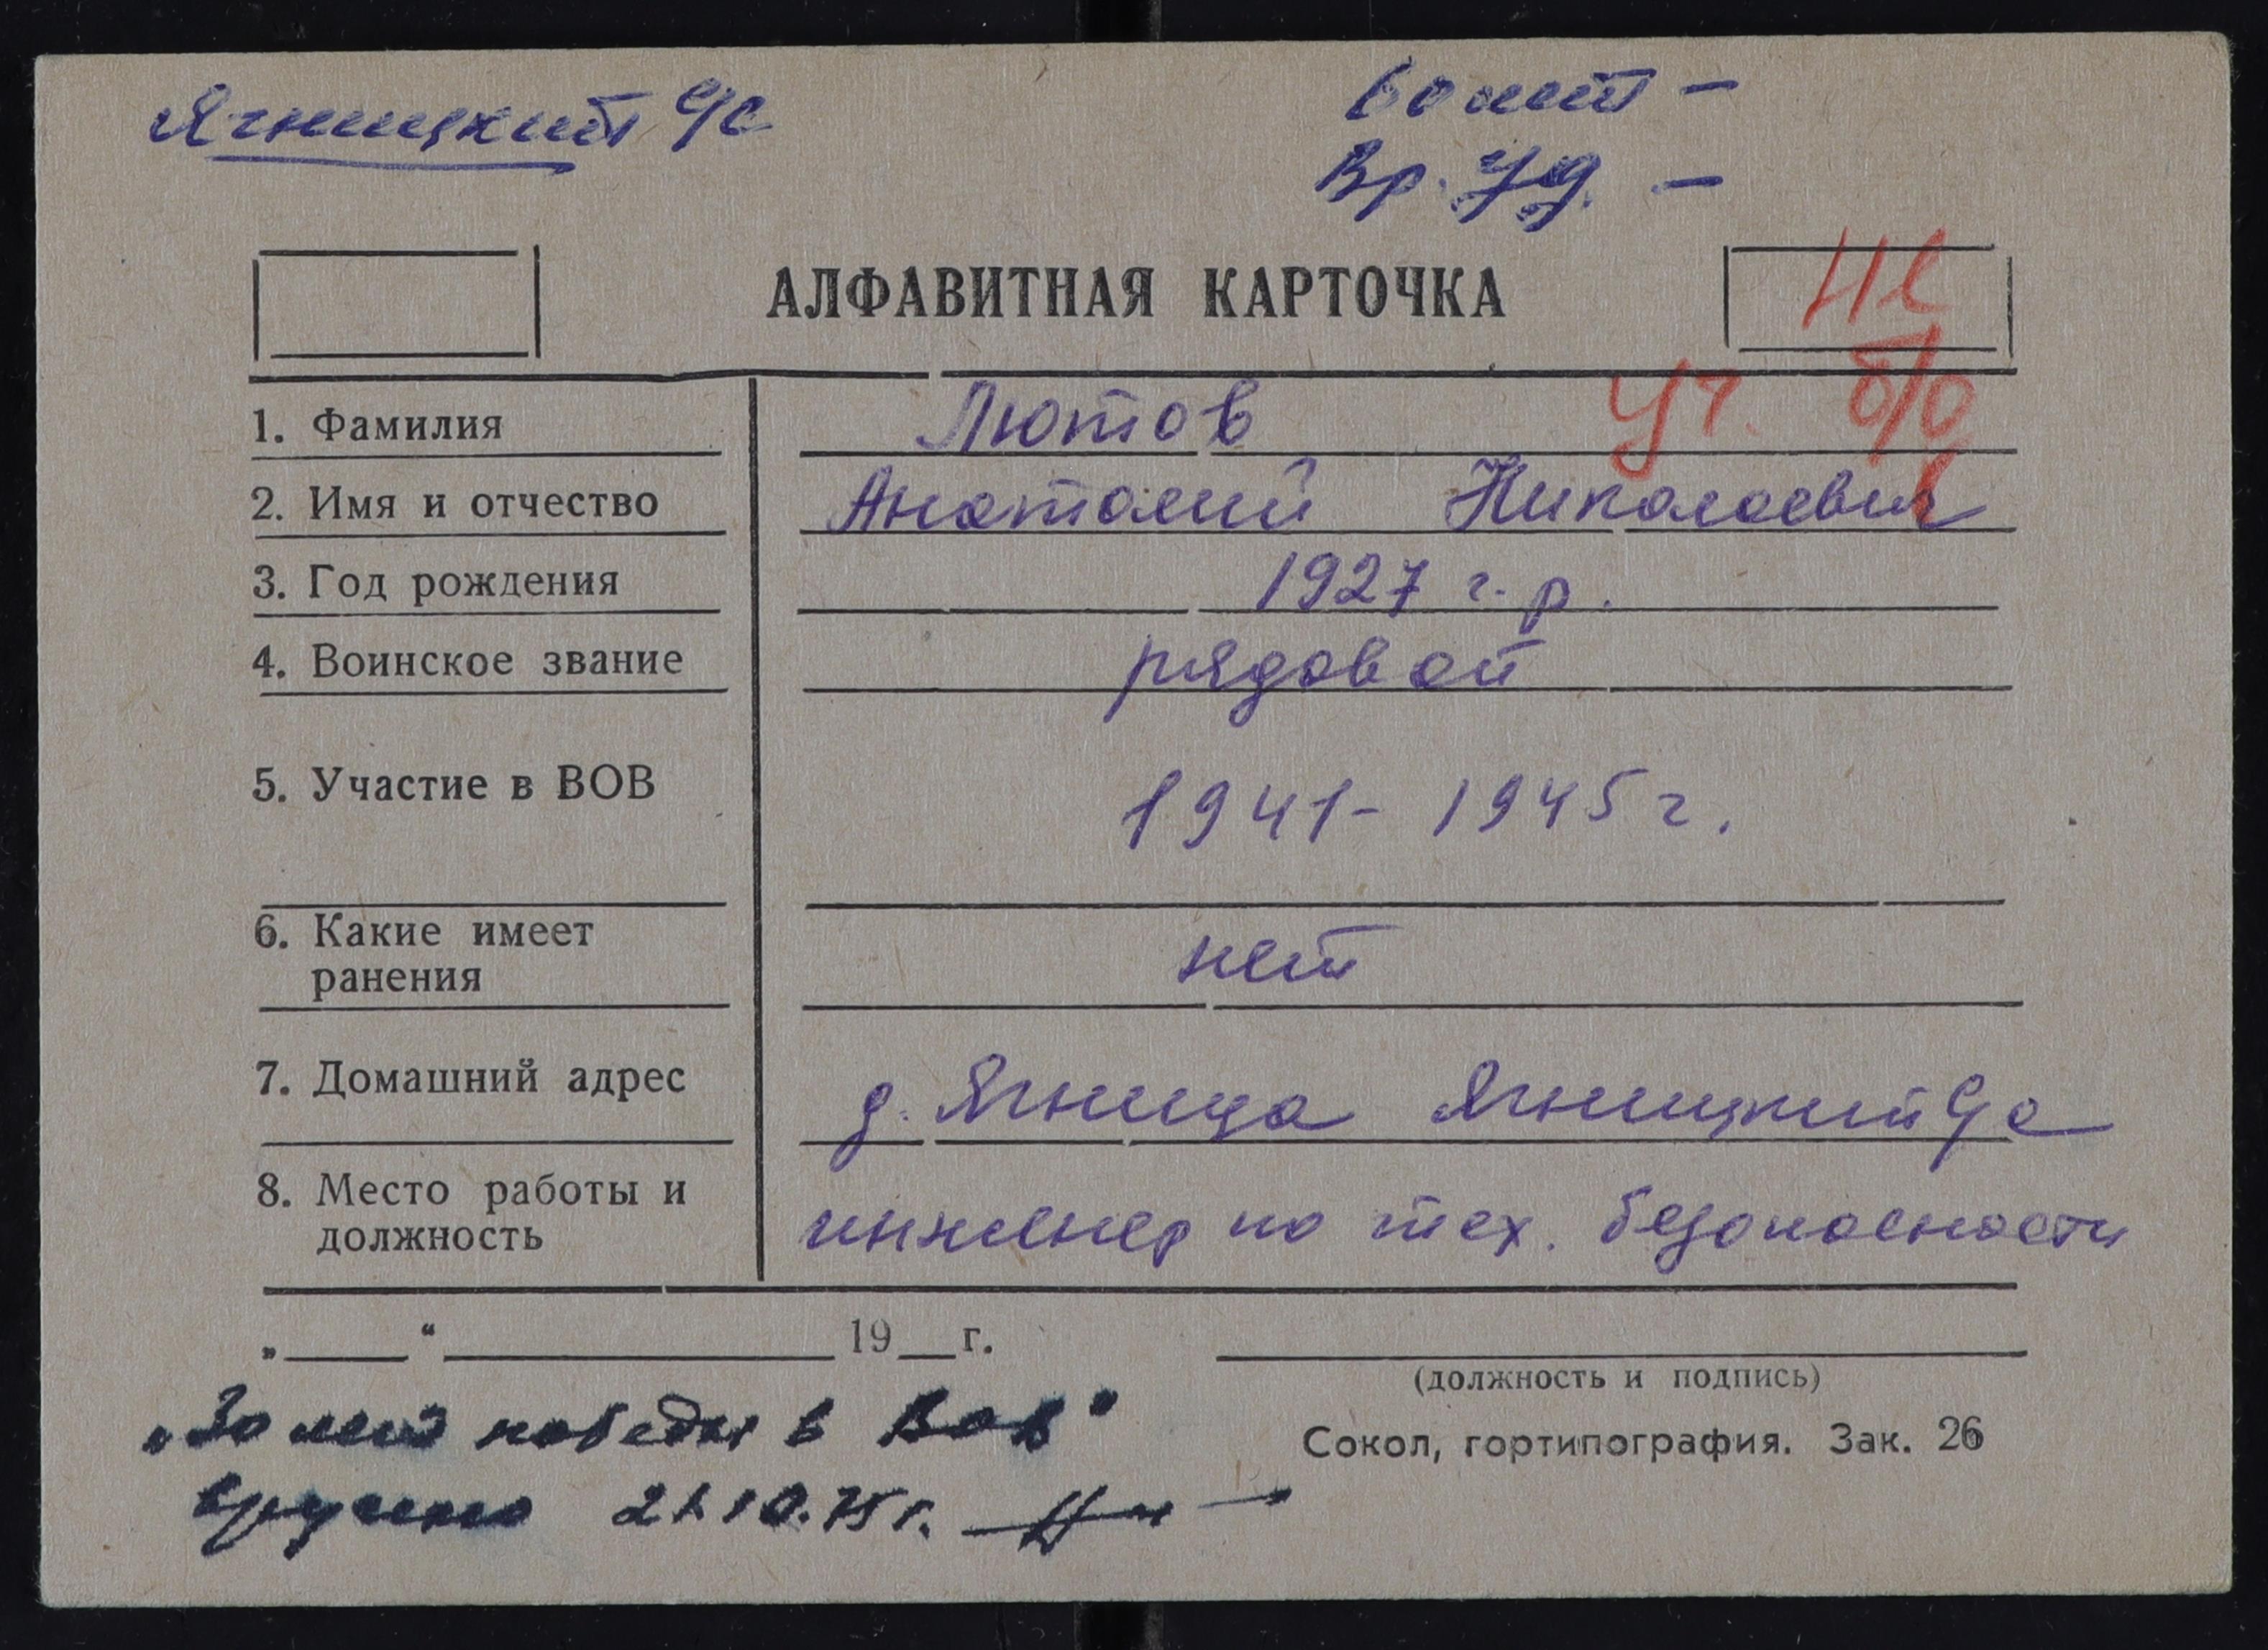 Ягницкий с/с
60 лет –
Вр. уд. –
АЛФАВИТНАЯ КАРТОЧКА
уч. б/д
1. Фамилия Лютов
2. Имя и отчество Анатолий Николаевич
3. Год рождения 1927 г. р.
4. Воинское звание рядовой
5. Участие в ВОВ 1941- 1945 г.
6. Какие имеет
ранения нет
7. Домашний адрес д. Ягница Ягницкий с/с
8. Место работы и
должность инженер по тех. безопасности
„ “ 19 г.
(должность и подпись)
„30 лет победы в ВОВ"
Сокол, гортипография. Зак. 26
вручено 21.10.75 г.